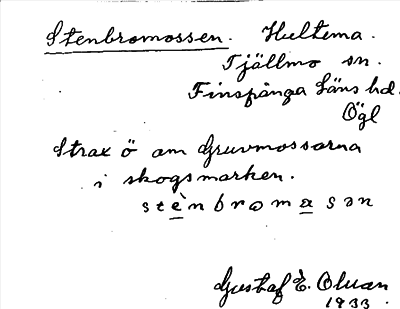 Stenbromossen. Hultema.
Tjällmo sn.
Finspånga Läns hd.
Ögl
Strax ö om Gruvmossarna
i skogsmarken.
stènbromasan
Gustaf E. Oluan
1933.